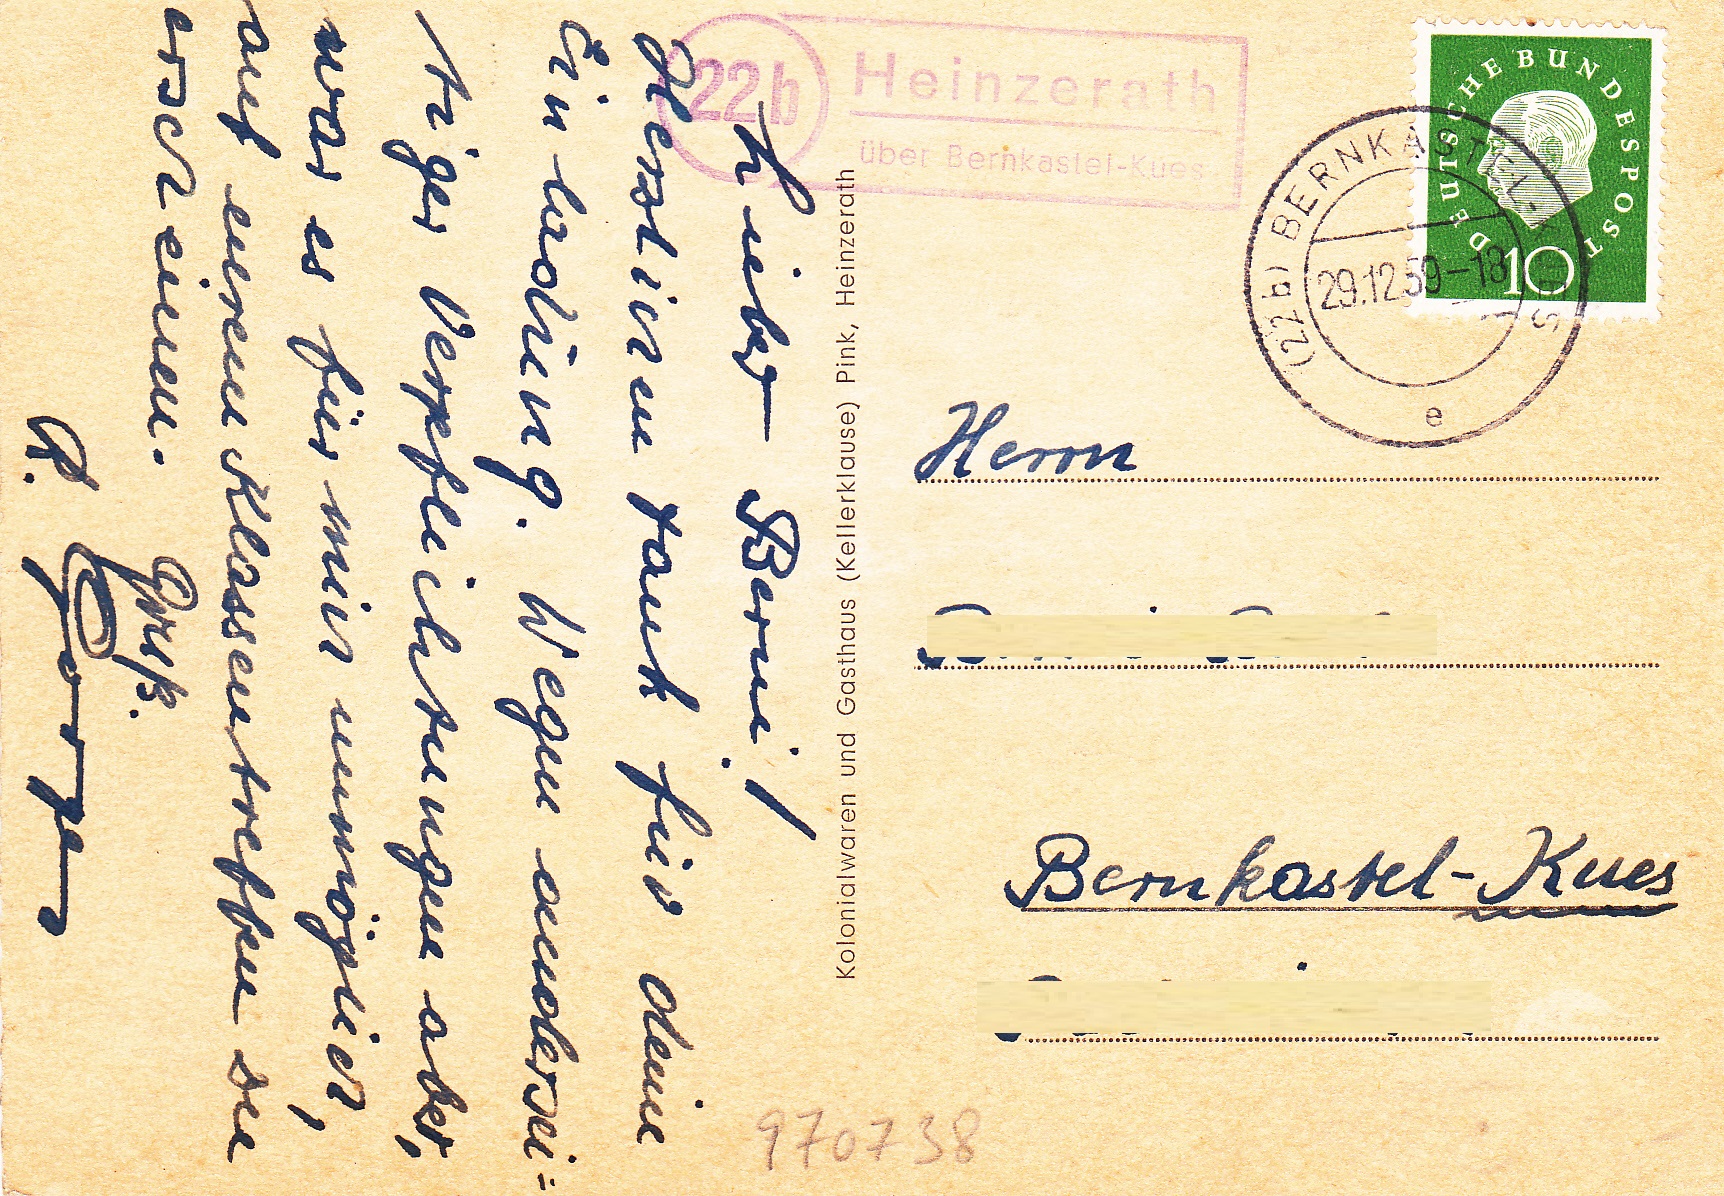 22b
Heinzerath
über Bernkastel-Kues
DEUTSCHE BUNDESPOST
10
(22b) BERNKASTEL-KUES
29.12.59-18
e
Lieber Berni!
Herzlichen Dank für deine
Einladung. Wegen andersei=
tiger Verpflichtungen aber,
war es für mich unmöglich,
auf eurem Klassentreffen zu
erscheinen.
Gruß.
R.
Kolonialwaren und Gasthaus (Kellerklause) Pink, Heinzerath
Herrn
Bernkastel-Kues
970738